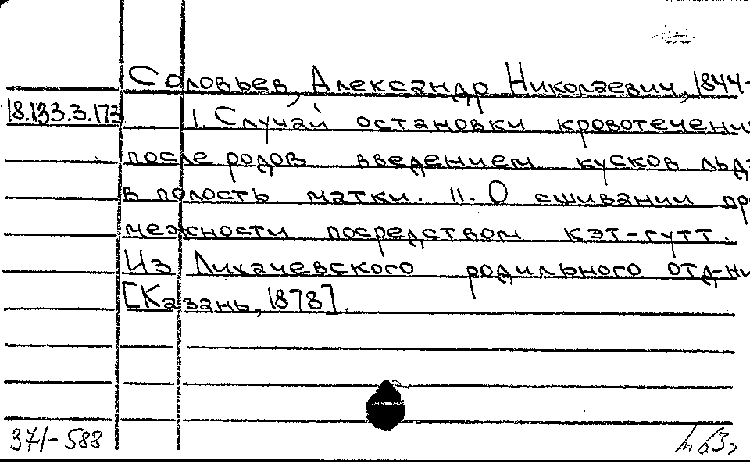 Соловьев, Александр Николаевич, 1844-
18.133.3.173
I. Случай остановки кровотечения
после родов введением кусков льда
в полость матки. II. О сшивании про
межности посредством кэт-гутт.
Из Лихачевского родильного отд-ни
[Казань, 1878].
371-588